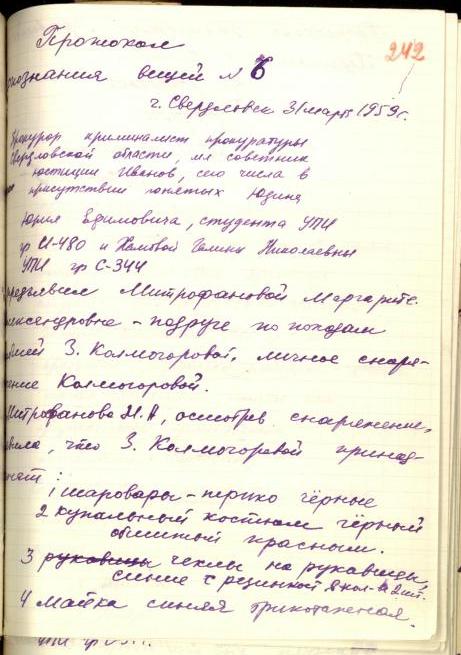 242
Протокол
опознания вещей № 6
г. Свердловск 31 марта 1959г.
Прокурор криминалист прокуратуры
Свердловской области, мл советник
юстиции Иванов, сего числа в
присутствии понятых Юдина
Юрия Ефимовича, студента УПИ
гр И-480 и Хамовой Галины Николаевны
УПИ гр С-344
предъявил Митрофановой Маргарите
лександровне - подруге по походам
З. Колмогоровой, личное снаря-
жение Колмогоровой.
Митрофанова М.А, осмотрев снаряжение,
что З. Колмогоровой принад-
лежат:
1 шаровары - трико чёрные
2 купальный костюм чёрный
обшитый красным.
3 рукавицы чехлы на рукавицы,
синие с резинкой в кол-в 2 шт.
4 Майка синяя трикотажная.
УПИ гр